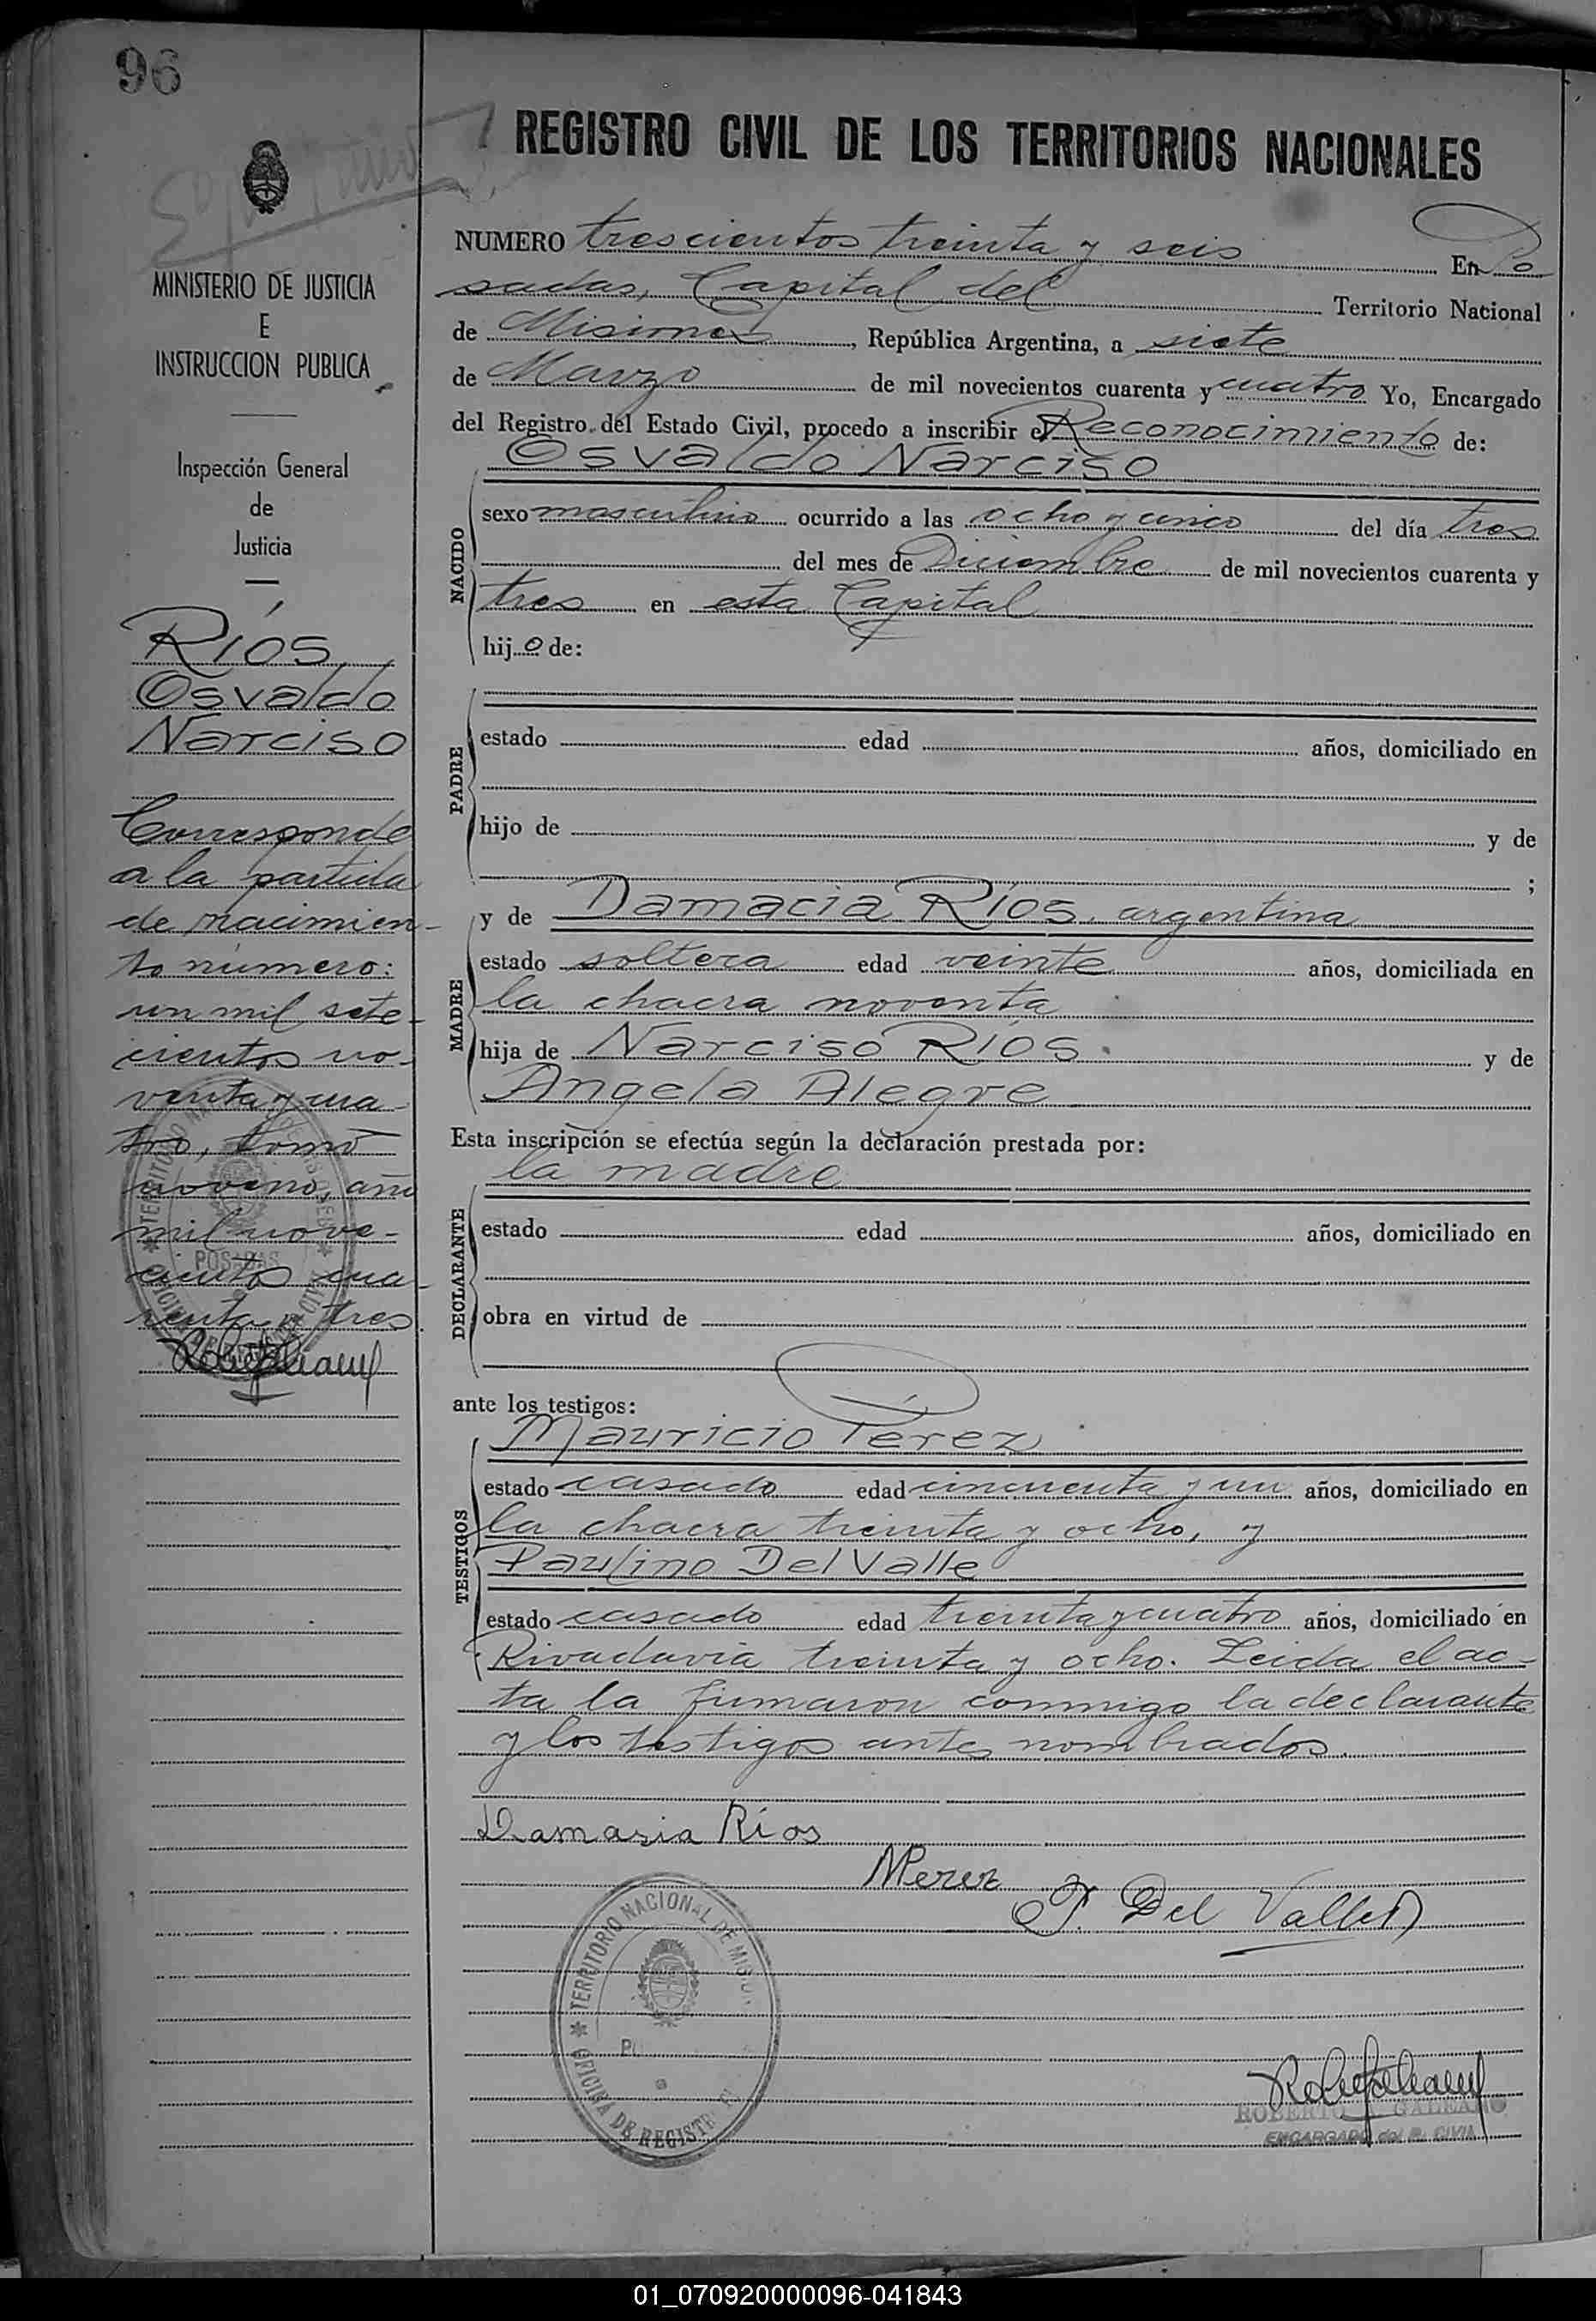 96
REGISTRO CIVIL DE LOS TERRITORIOS NACIONALES
MINISTERIO DE JUSTICIA
E
INSTRUCCION PUBLICA
Inspección General
de
Justicia
Ríos,
Osvaldo
Narciso
Corresponde
a la partida
de nacimien-
to número:
un mil sete-
cientos no-
venta y cua-
tro, tomo
noveno, año
mil nove-
cientos cua-
renta y tres.
NUMERO trescientos treinta y seis En Po
sadas, Capital del Territorio Nacional
de Misiones, República Argentina, a siete
de Marzo de mil novecientos cuarenta y cuatro Yo, Encargado
del Registro del Estado Civil, procedo a inscribir el Reconocimiento de:
Osvaldo Narciso
NACIDO
sexo masculino ocurrido a las ocho y cinco del día tres
del mes de Diciembre de mil novecientos cuarenta y
tres en esta Capital
hijo de:
PADRE
estado edad años, domiciliado en
hijo de y de
;
MADRE
y de Damacia Ríos, argentina
estado soltera edad veinte años, domiciliada en
la chacra noventa
hija de Narciso Ríos y de
Angela Alegre
Esta inscripción se efectúa según la declaración prestada por:
la madre
DECLARANTE
estado edad años, domiciliado en
obra en virtud de
ante los testigos:
TESTIGOS
Mauricio Pérez
estado casado edad cincuenta y un años, domiciliado en
la chacra treinta y ocho, y
Paulino Del Valle
estado casado edad treinta y cuatro años, domiciliado en
Rivadavia treinta y ocho. Leida el ac-
ta la firmaron conmigo la declarante
y los testigos antes nombrados.
Damasia Ríos
MPerez
P. Del Valle
TERRITORIO NACIONAL DE MISION
OFICINA DE REGISTR
ROBERTO GALEANO
ENCARGADO del R. CIVIL
01_070920000096-041843